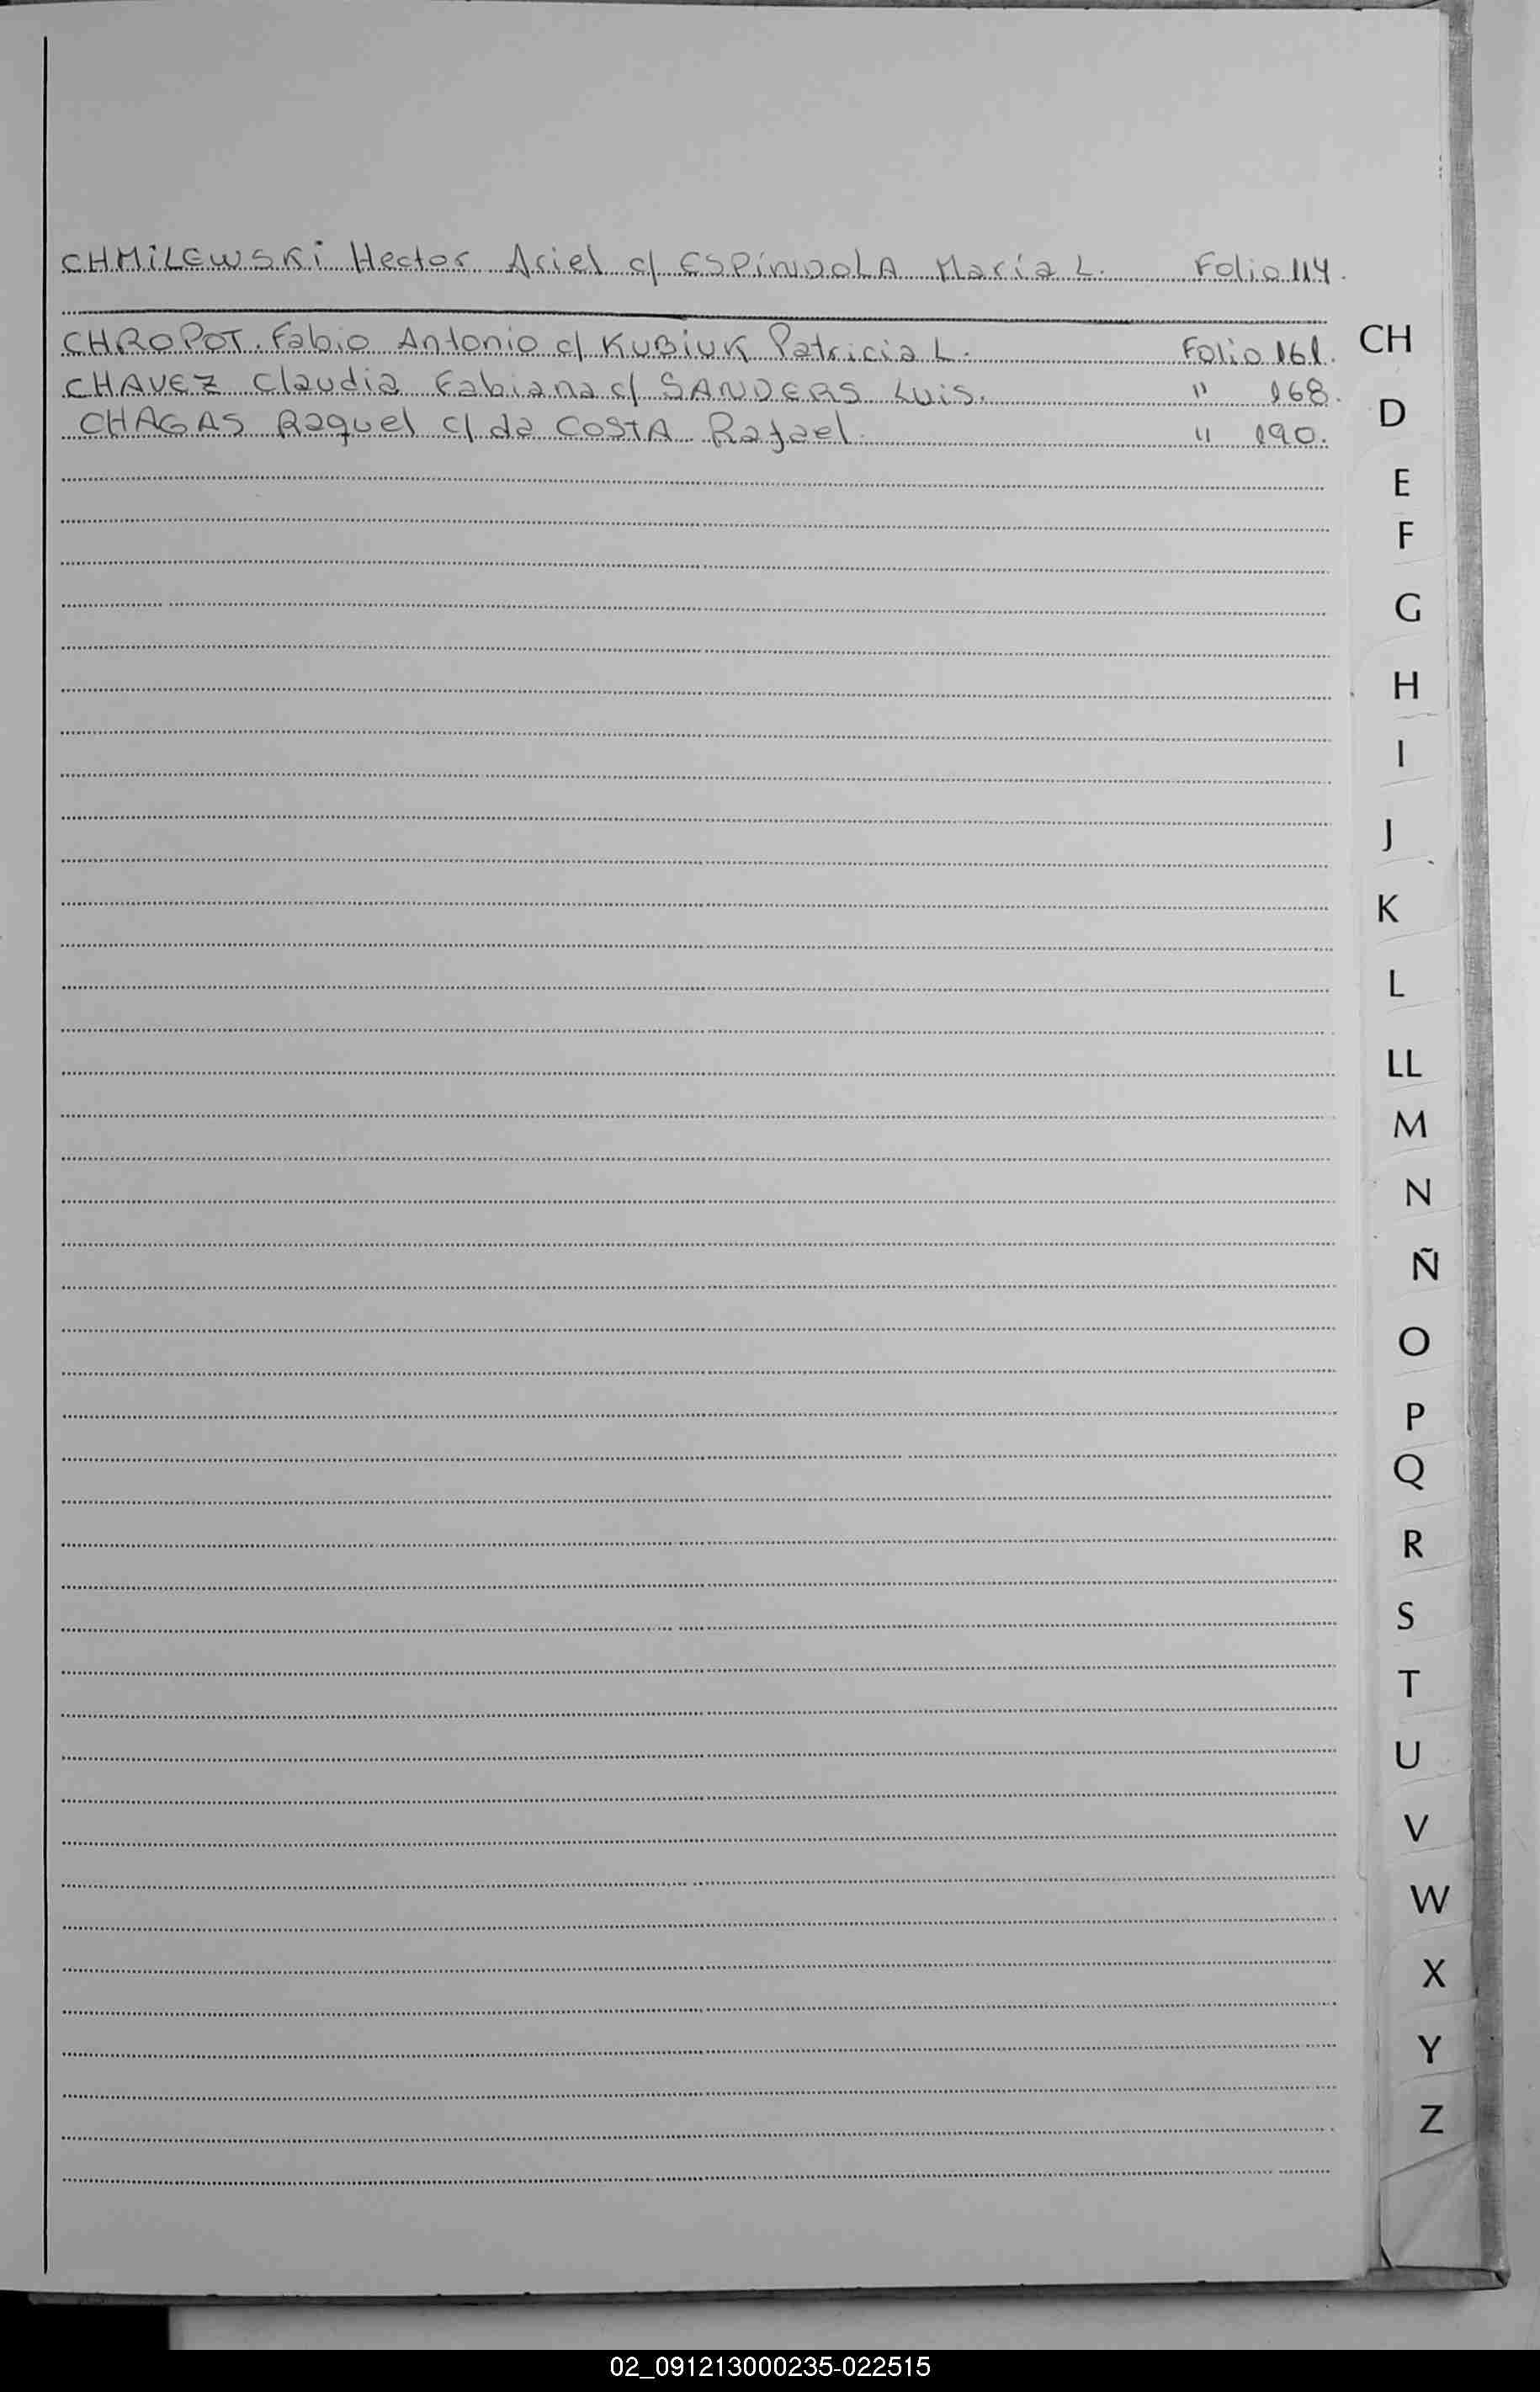 CHMiLEWSKi Hector Ariel c/ ESPíNDOLA María L. Folio 114.
CHROPOT. Fabio Antonio c/ KUBiUK Patricia L. Folio 161.
CHAVEZ Claudia Fabiana c/ SANDERS Luis. " 168.
CHAGAS Raquel c/ da COSTA Rafael. " 190.
CH
D
E
F
G
H
I
J
K
L
LL
M
N
Ñ
O
P
Q
R
S
T
U
V
W
X
Y
Z
02_091213000235-022515